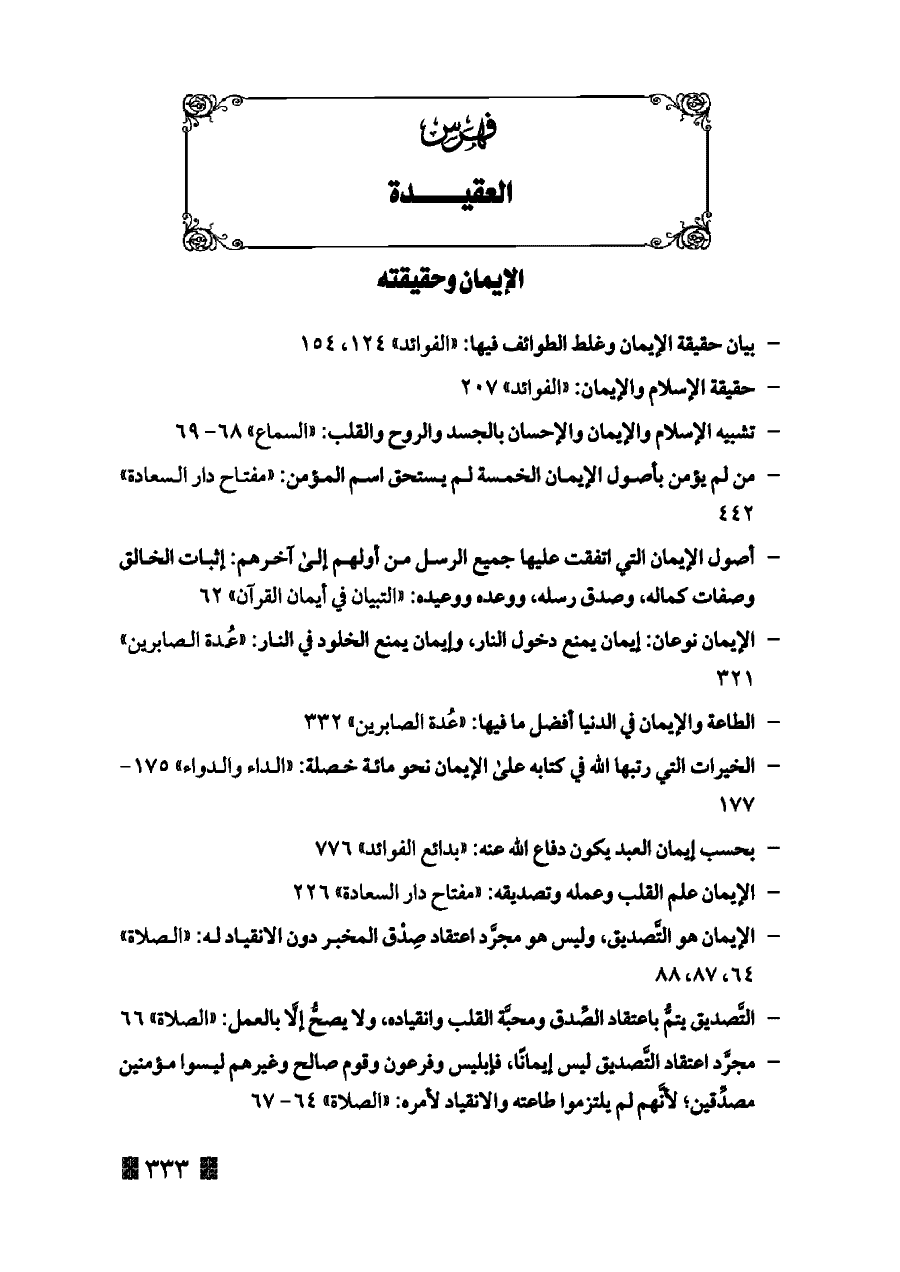 فهرس
العقيـــــدة
الإيمان وحقيقته
- بيان حقيقة الإيمان وغلط الطوائف فيها: «الفوائد» ١٢٤، ١٥٤
- حقيقة الإسلام والإيمان: «الفوائد» ٢٠٧
- تشبيه الإسلام والإيمان والإحسان بالجسد والروح والقلب: «السماع» ٦٨- ٦٩
- من لم يؤمن بأصول الإيمان الخمسة لم يستحق اسم المؤمن: «مفتاح دار السعادة»
٤٤٢
- أصول الإيمان التي اتفقت عليها جميع الرسل من أولهم إلىٰ آخرهم: إثبات الخالق
وصفات كماله، وصدق رسله، ووعده ووعيده: «التبيان في أيمان القرآن» ٦٢
- الإيمان نوعان: إيمان يمنع دخول النار، وإيمان يمنع الخلود في النار: «عُدة الصابرين»
٣٢١
- الطاعة والإيمان في الدنيا أفضل ما فيها: «عُدة الصابرين» ٣٣٢
- الخيرات التي رتبها الله في كتابه علىٰ الإيمان نحو مائة خصلة: «الداء والدواء» ١٧٥-
١٧٧
- بحسب إيمان العبد يكون دفاع الله عنه: «بدائع الفوائد» ٧٧٦
- الإيمان علم القلب وعمله وتصديقه: «مفتاح دار السعادة» ٢٢٦
- الإيمان هو التَّصديق، وليس هو مجرَّد اعتقاد صِدْق المخبر دون الانقياد له: «الصلاة»
٦٤، ٨٧، ٨٨
- التَّصديق يتمُّ باعتقاد الصِّدق ومحبَّة القلب وانقياده، ولا يصحُّ إلَّا بالعمل: «الصلاة» ٦٦
- مجرَّد اعتقاد التَّصديق ليس إيمانًا، فإبليس وفرعون وقوم صالح وغيرهم ليسوا مؤمنين
مصدِّقين؛ لأنَّهم لم يلتزموا طاعته والانقياد لأمره: «الصلاة» ٦٤- ٦٧
٣٣٣